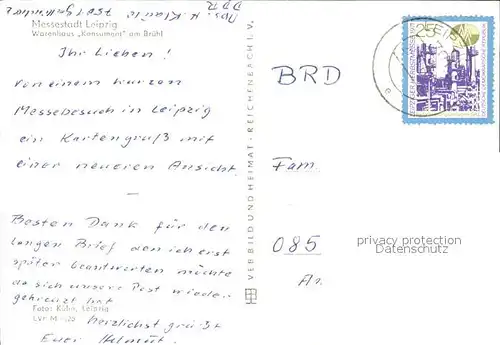 Messestadt Leipzig
Warenhaus „Konsument" am Brühl
DDR
Ihr Lieben!
Von einem kurzen
Messebesuch in Leipzig
ein Kartengruß mit
einer neueren Ansicht.
—
Besten Dank für den
langen Brief den ich erst
später beantworten möchte
da sich unsere Post wieder
gekreuzt hat
Foto: Kühn, Leipzig
herzlichst grüßt
Euer Helmut.
VEB BILD UND HEIMAT · REICHENBACH I. V.
BRD
Fam.
085
25
privacy protection
Datenschutz